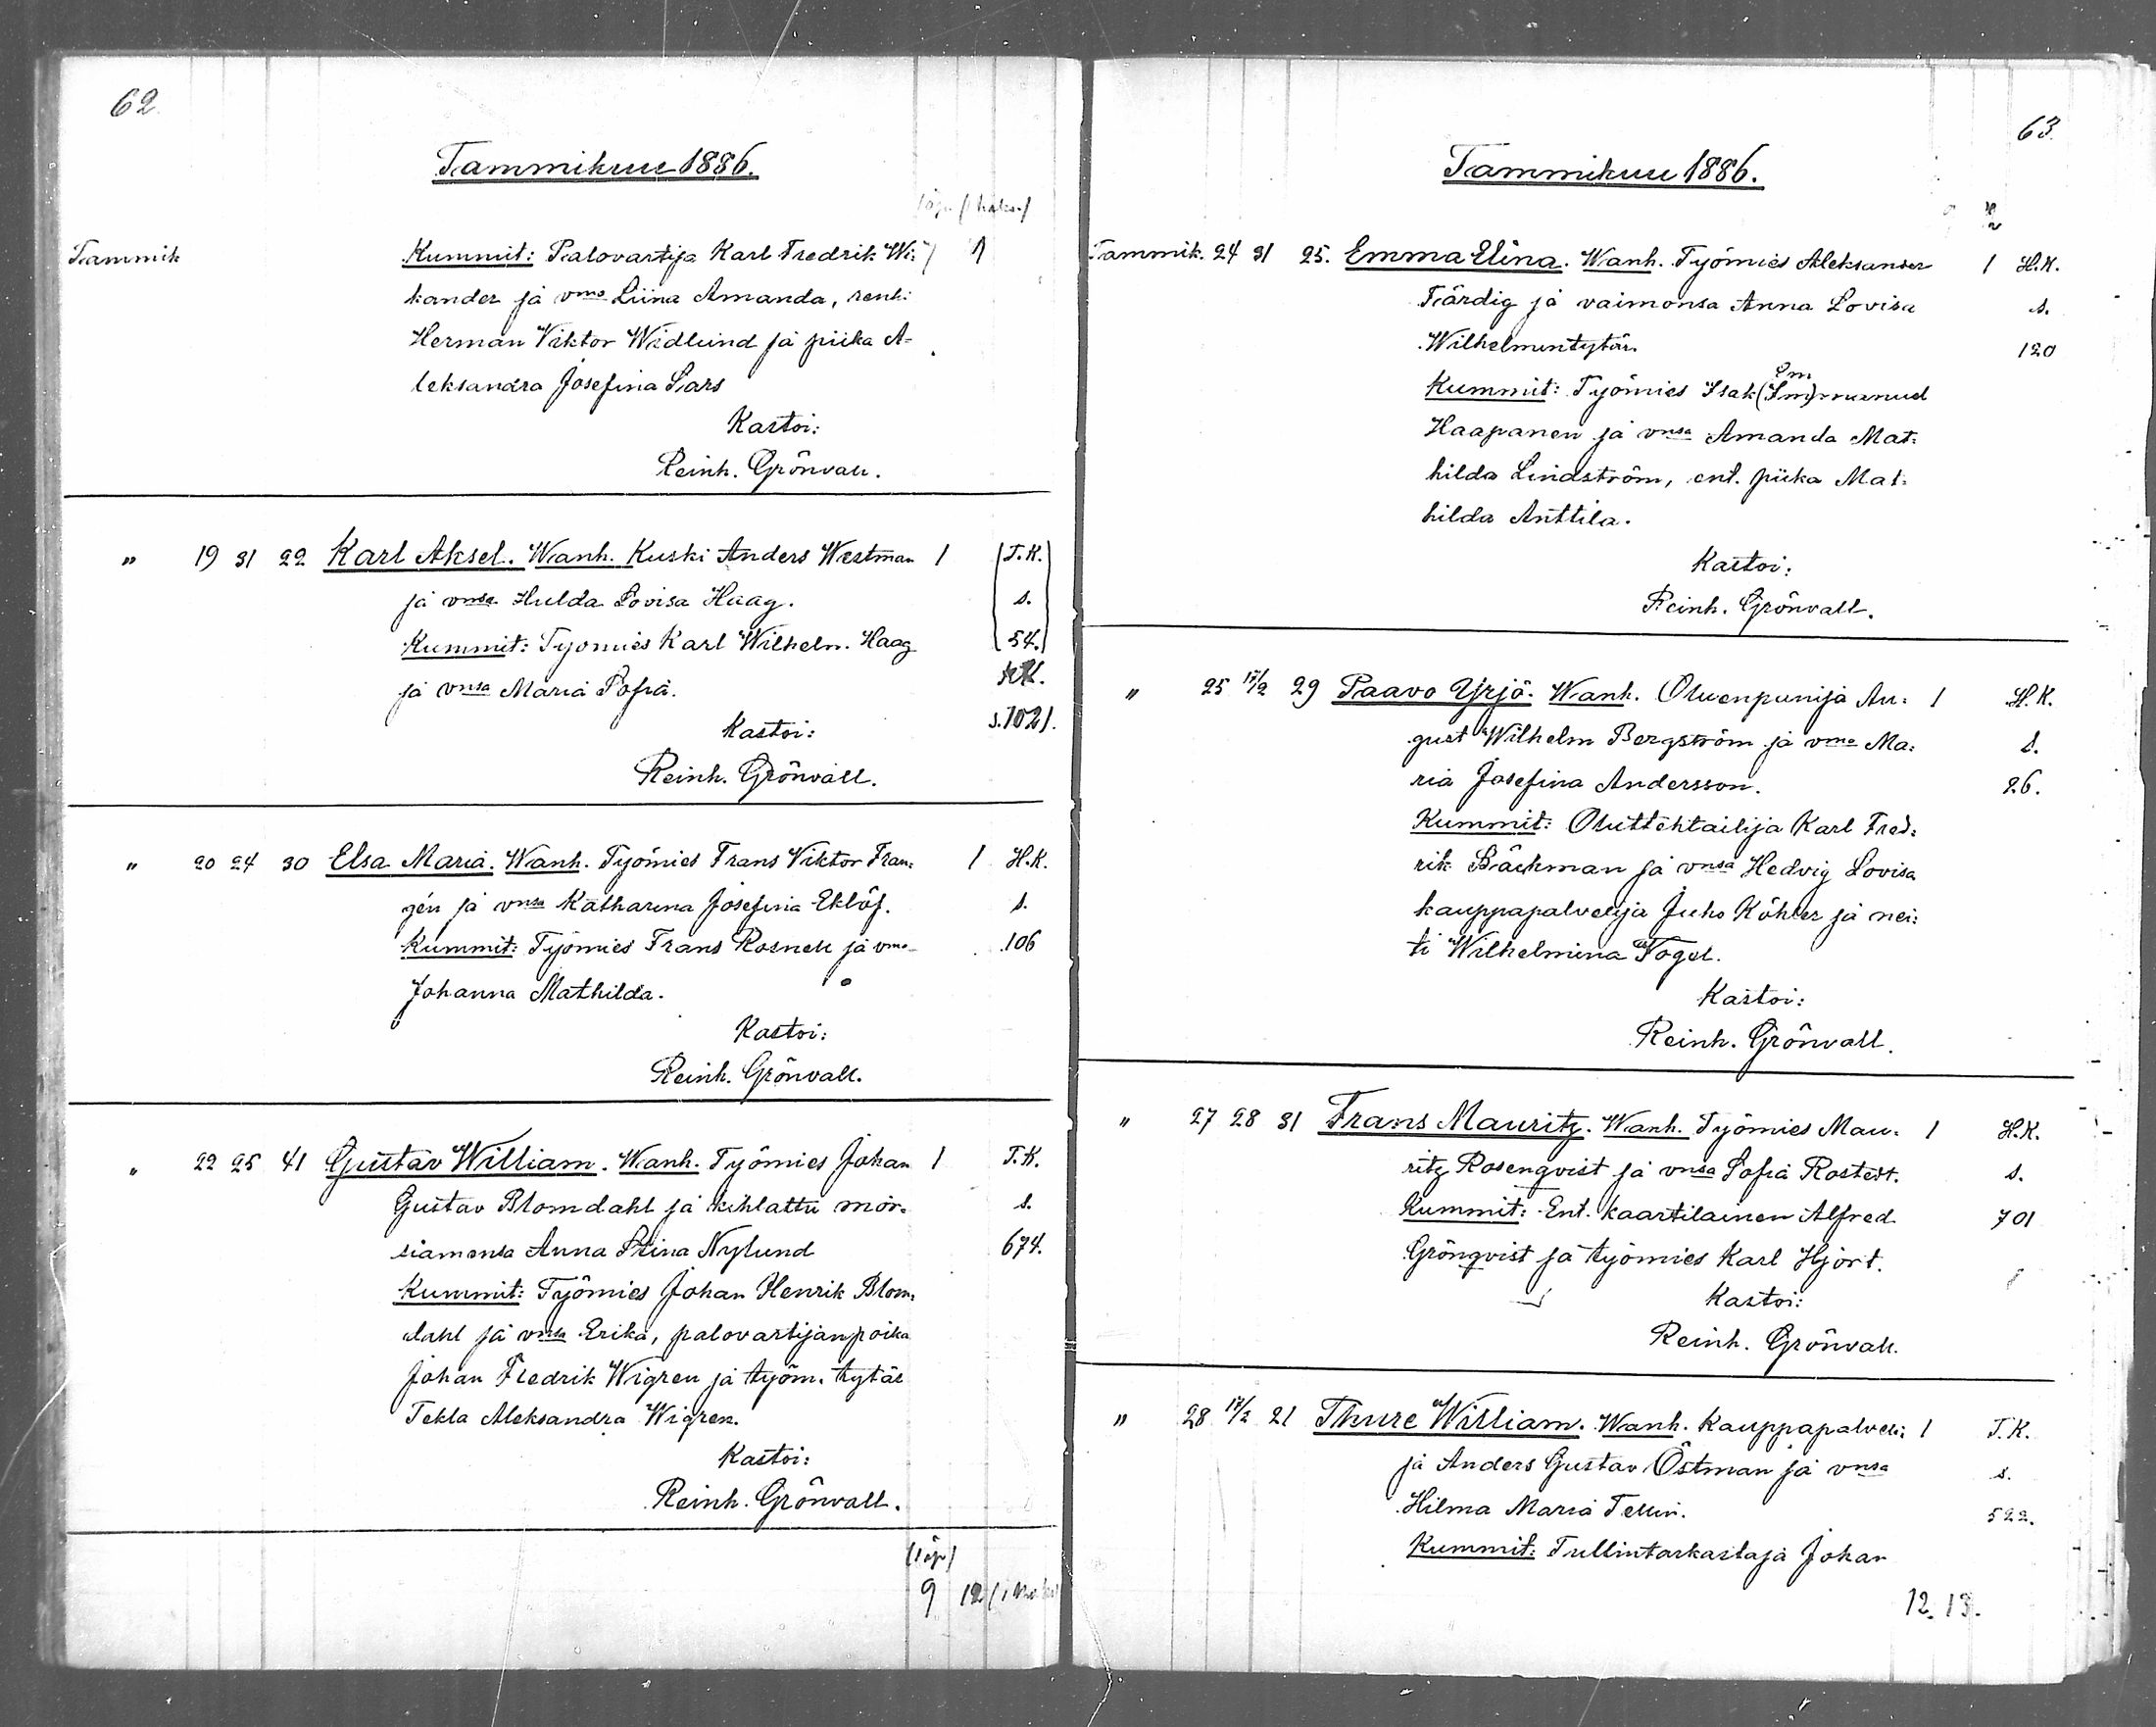 62.
Tammikuu 1886.
Tammik Kummit: Palovartija Karl Fredrik Wi: 1
kander ja vmo Liina Amanda, renki
Herman Viktor Widlund ja piika A=
leksandra Josefina Lars
Kastoi:
Reinh. Grönvall.
" 19 31 22 Karl Aksel. Wanh. Kuski Anders Westman 1 T.K.
ja vnsa Hulda Lovisa Haag. s.
Kummit: Työmies Karl Wilhelm Haag 54.
ja vnsa Maria Sofia.
Kastoi: s. 1021.
Reinh. Grönvall.
" 20 24 30 Elsa Maria. Wanh. Työmies Frans Viktor Fran: 1 H.K.
zén ja vnsa Katharina Josefina Eklöf. s.
Kummit: Työmies Frans Rosnell ja vmo 106
Johanna Mathilda.
Kastoi:
Reinh. Grönvall.
" 22 25 41 Gustav William. Wanh. Työmies Johan 1 T.K.
Gustav Blomdahl ja kihlattu mor: s.
siamensa Anna Stina Nylund 674.
Kummit: Työmies Johan Henrik Blom:
dahl ja vnsa Erika, palovartijanpoika
Johan Fredrik Wigren ja työm. tytär
Tekla Aleksandra Wigren.
Kastoi:
Reinh. Grönvall.
9 12
63.
Tammikuu 1886.
Tammik. 24 31 25. Emma Elina. Wanh. Työmies Aleksander 1 H.K.
Färdig ja vaimonsa Anna Lovisa s.
Wilhelmintytär. 120
Em
Kummit: Työmies Isak (Im)manuel
Haapanen ja vnsa Amanda Mat:
hilda Lindström, ent. piika Mat:
hilda Anttila.
Kastoi:
Reinh. Grönvall.
" 25 17/2 29 Paavo Yrjö. Wanh. Oluenpanija Au: 1 H.K.
gust Wilhelm Bergström ja vmo Ma: s.
ria Josefina Andersson. 26.
Kummit: Oluttehtailija Karl Fred:
rik Bäckman ja vnsa Hedvig Lovisa
kauppapalvelija Juho Köhler ja nei:
ti Wilhelmina Vogel.
Kastoi:
Reinh. Grönvall.
" 27 28 31 Frans Mauritz. Wanh. Työmies Mau: 1 H.K.
ritz Rosenqvist ja vnsa Sofia Rostedt. s.
Kummit: Ent. kaartilainen Alfred 701
Grönqvist ja työmies Karl Hjort.
Kastoi:
Reinh. Grönvall.
" 28 17/2 21 Thure William. Wanh. Kauppapalveli: 1 T.K.
ja Anders Gustav Östman ja vnsa s.
Hilma Maria Tellin. 522.
Kummit: Tullintarkastaja Johan
12. 13.